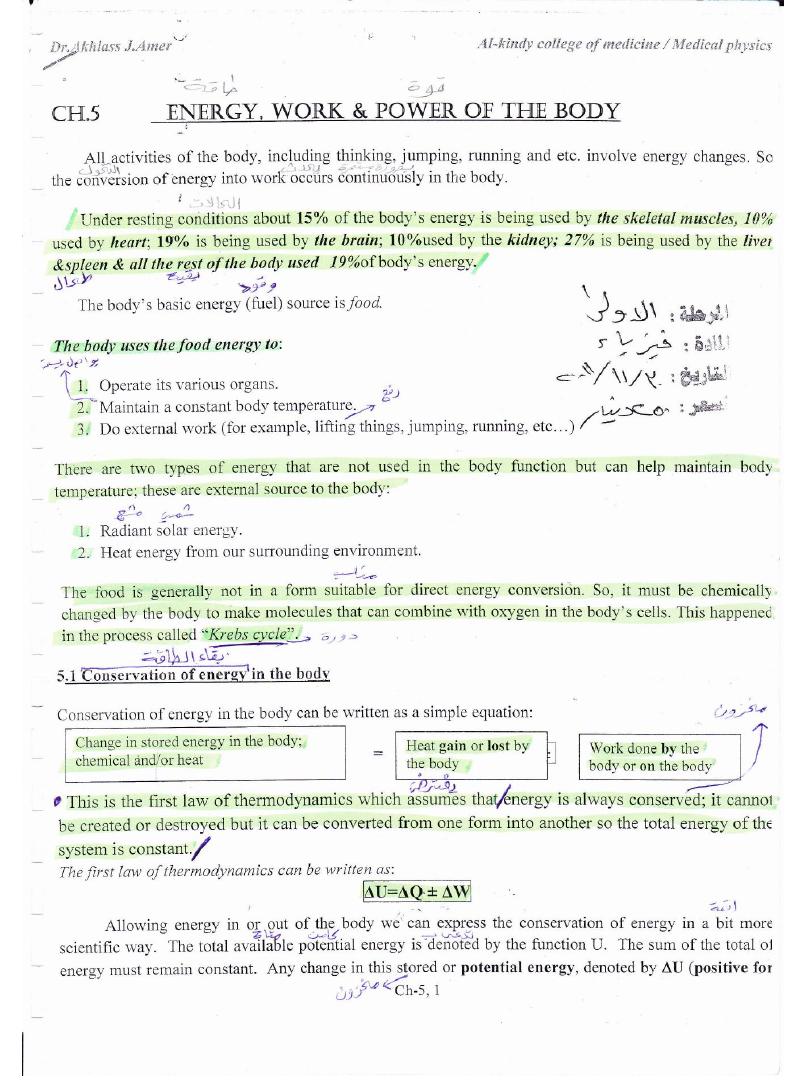 Dr.Akhlass J.Amer
Al-kindy college of medicine / Medical physics
طاقة
قوة
CH.5 ENERGY, WORK & POWER OF THE BODY
All activities of the body, including thinking, jumping, running and etc. involve energy changes. So
the conversion of energy into work occurs continuously in the body.
الحالات
Under resting conditions about 15% of the body's energy is being used by the skeletal muscles, 10%
used by heart; 19% is being used by the brain; 10%used by the kidney; 27% is being used by the liver
&spleen & all the rest of the body used 19%of body's energy.
طحال
وقود
The body's basic energy (fuel) source is food.
المرحلة : الاولى
The body uses the food energy to:
المادة : فيزياء
1. Operate its various organs.
التاريخ :
2. Maintain a constant body temperature.
3. Do external work (for example, lifting things, jumping, running, etc…)
There are two types of energy that are not used in the body function but can help maintain body
temperature; these are external source to the body:
1. Radiant solar energy.
2. Heat energy from our surrounding environment.
مناسب
The food is generally not in a form suitable for direct energy conversion. So, it must be chemically
changed by the body to make molecules that can combine with oxygen in the body's cells. This happened
in the process called “Krebs cycle”. دورة
بقاء الطاقة
5.1 Conservation of energy in the body
Conservation of energy in the body can be written as a simple equation:
مخزون
Change in stored energy in the body;
chemical and/or heat
=
Heat gain or lost by
the body
Work done by the
body or on the body
يفترض
This is the first law of thermodynamics which assumes that energy is always conserved; it cannot
be created or destroyed but it can be converted from one form into another so the total energy of the
system is constant.
The first law of thermodynamics can be written as:
ΔU=ΔQ ± ΔW
Allowing energy in or out of the body we can express the conservation of energy in a bit more
scientific way. The total available potential energy is denoted by the function U. The sum of the total of
energy must remain constant. Any change in this stored or potential energy, denoted by ΔU (positive for
مخزون
Ch-5, 1